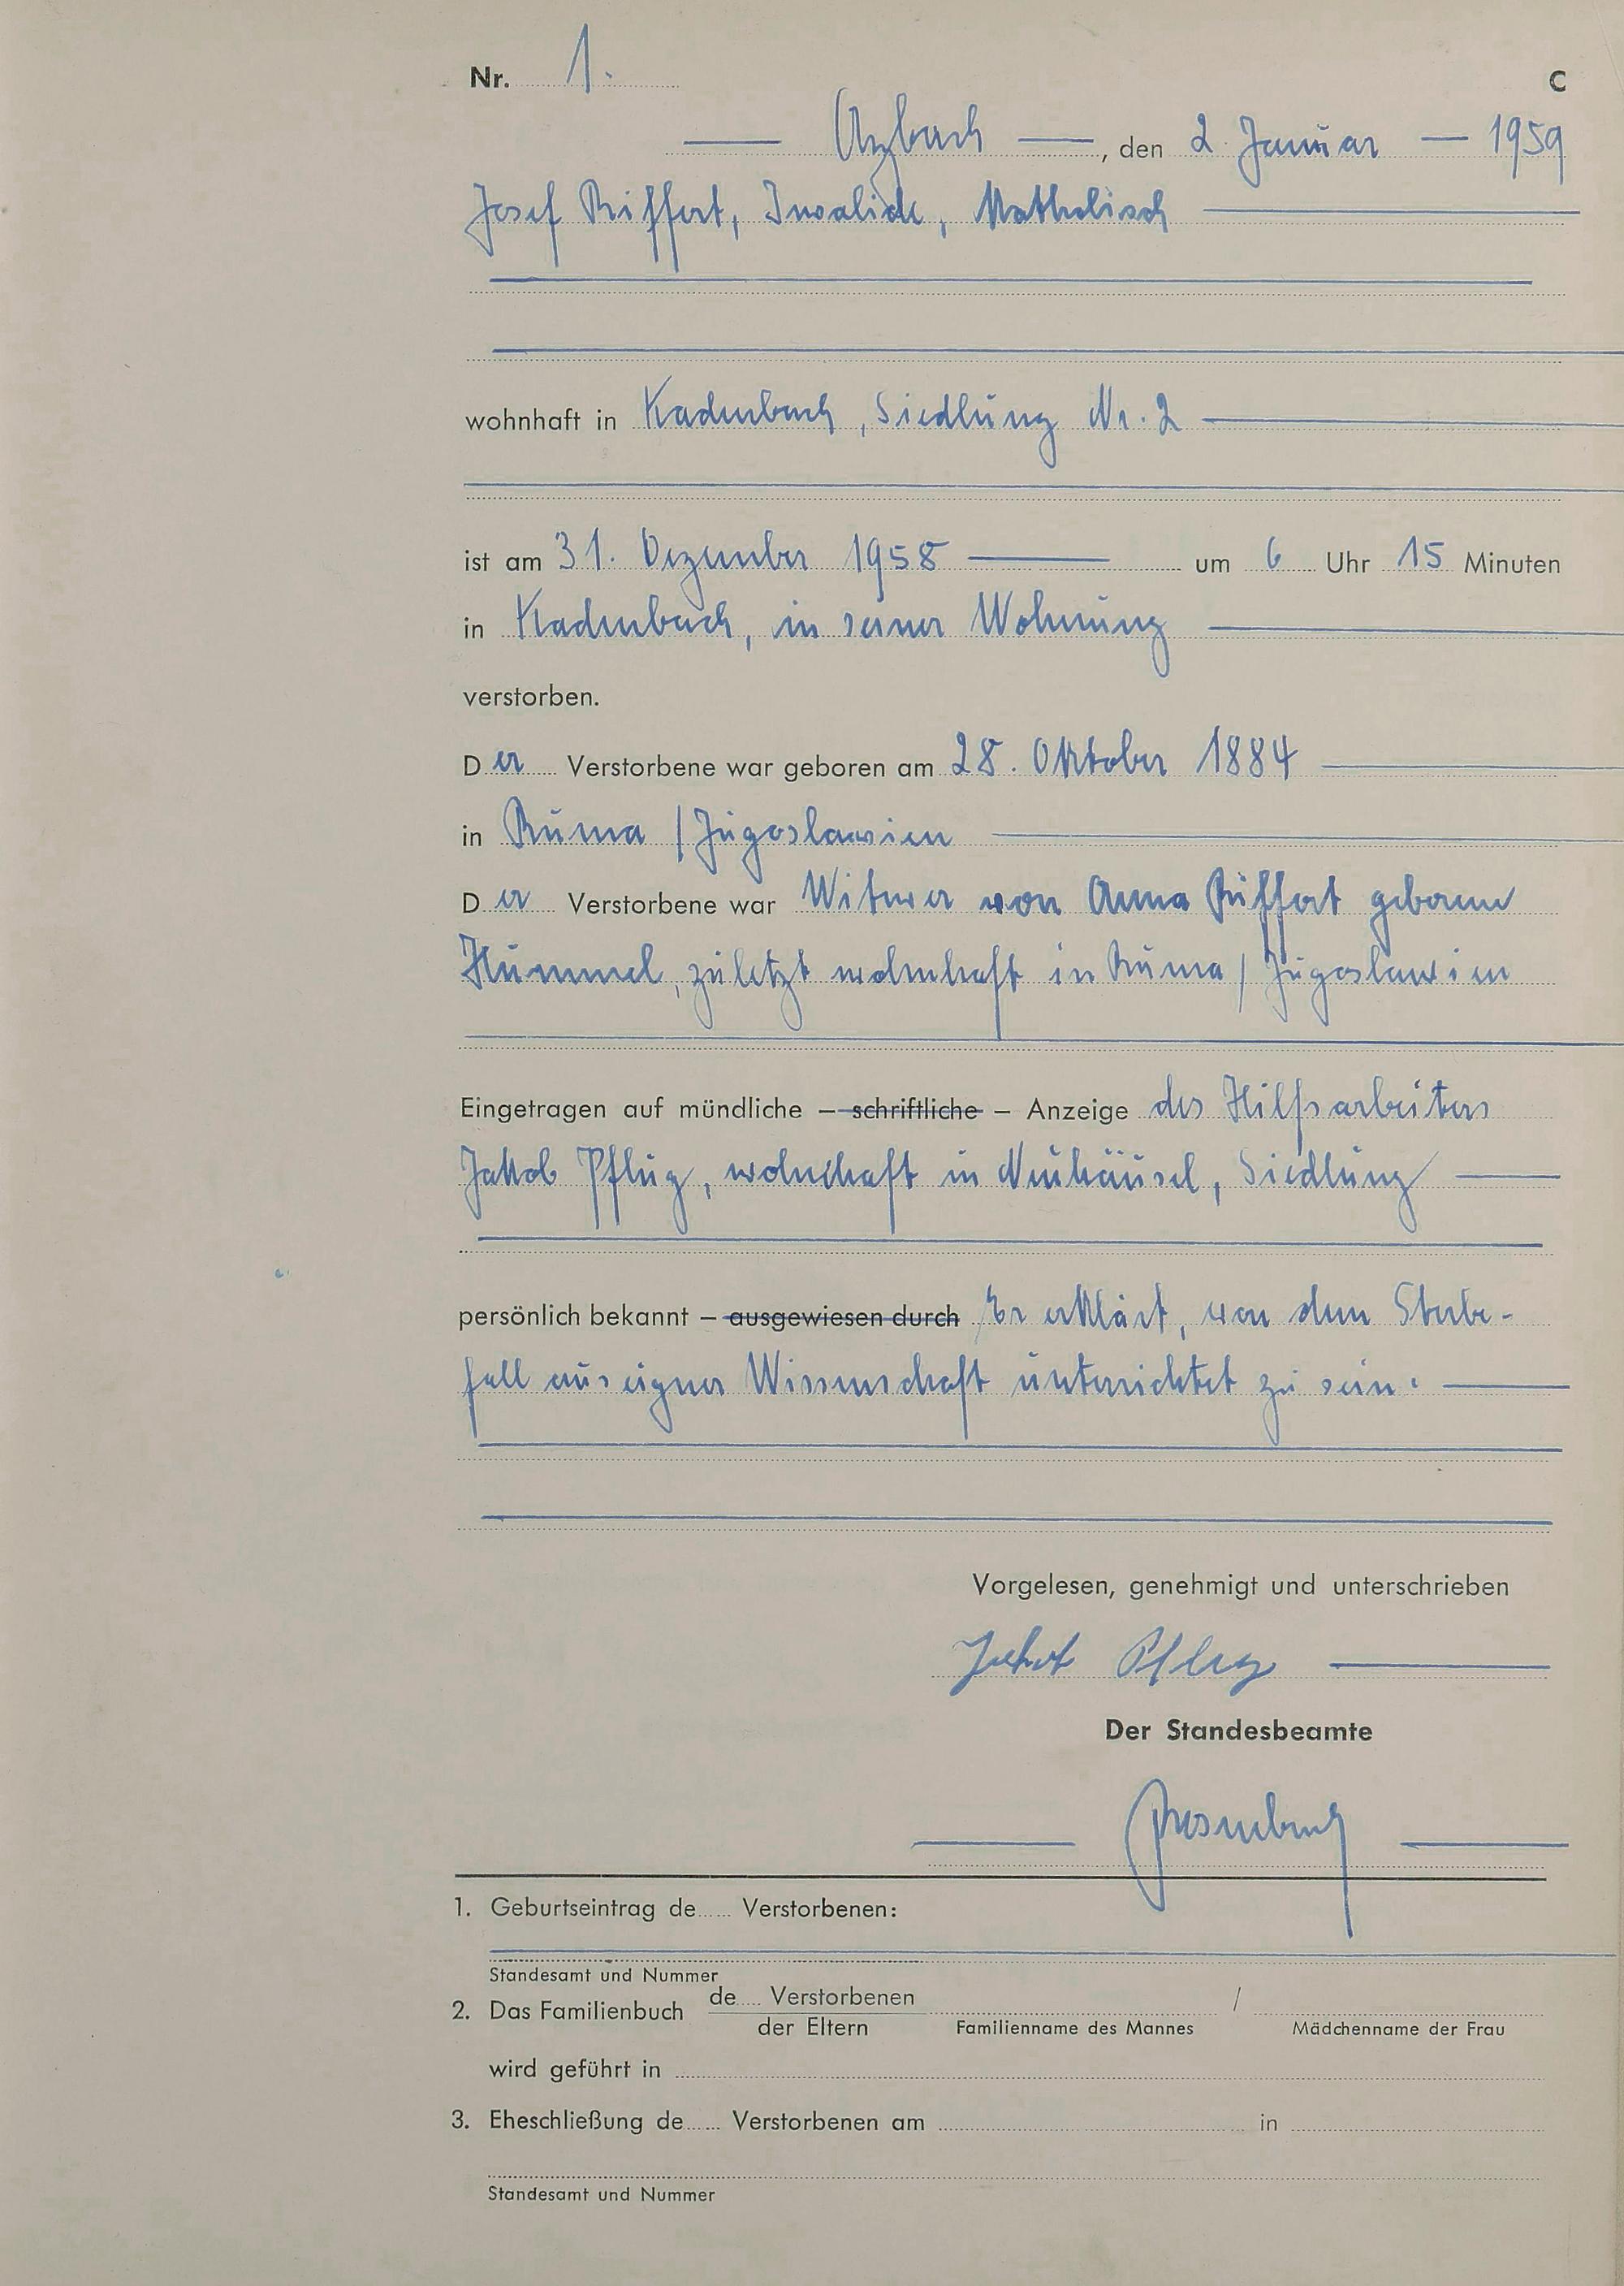 Nr. 1. C
— Arzbach —, den 2. Januar — 1959
Josef Riffert, Invalide, Katholisch
wohnhaft in Kadenbach, Siedlung Nr. 2
ist am 31. Dezember 1958 — um 6 Uhr 15 Minuten
in Kadenbach, in seiner Wohnung
verstorben.
Der Verstorbene war geboren am 28. Oktober 1884
in Ruma / Jugoslawien
Der Verstorbene war Witwer von Anna Riffert geborene
Hummel, zuletzt wohnhaft in Ruma / Jugoslawien
Eingetragen auf mündliche – schriftliche – Anzeige des Hilfsarbeiters
Jakob Pflug, wohnhaft in Neuhäusel, Siedlung —
persönlich bekannt – ausgewiesen durch Er erklärt, von dem Sterbe-
fall aus eigner Wissenschaft unterrichtet zu sein. —
Vorgelesen, genehmigt und unterschrieben
Jakob Pflug —
Der Standesbeamte
1. Geburtseintrag de..... Verstorbenen:
Standesamt und Nummer
2. Das Familienbuch de..... Verstorbenen /
der Eltern Familienname des Mannes Mädchenname der Frau
wird geführt in
3. Eheschließung de..... Verstorbenen am in
Standesamt und Nummer